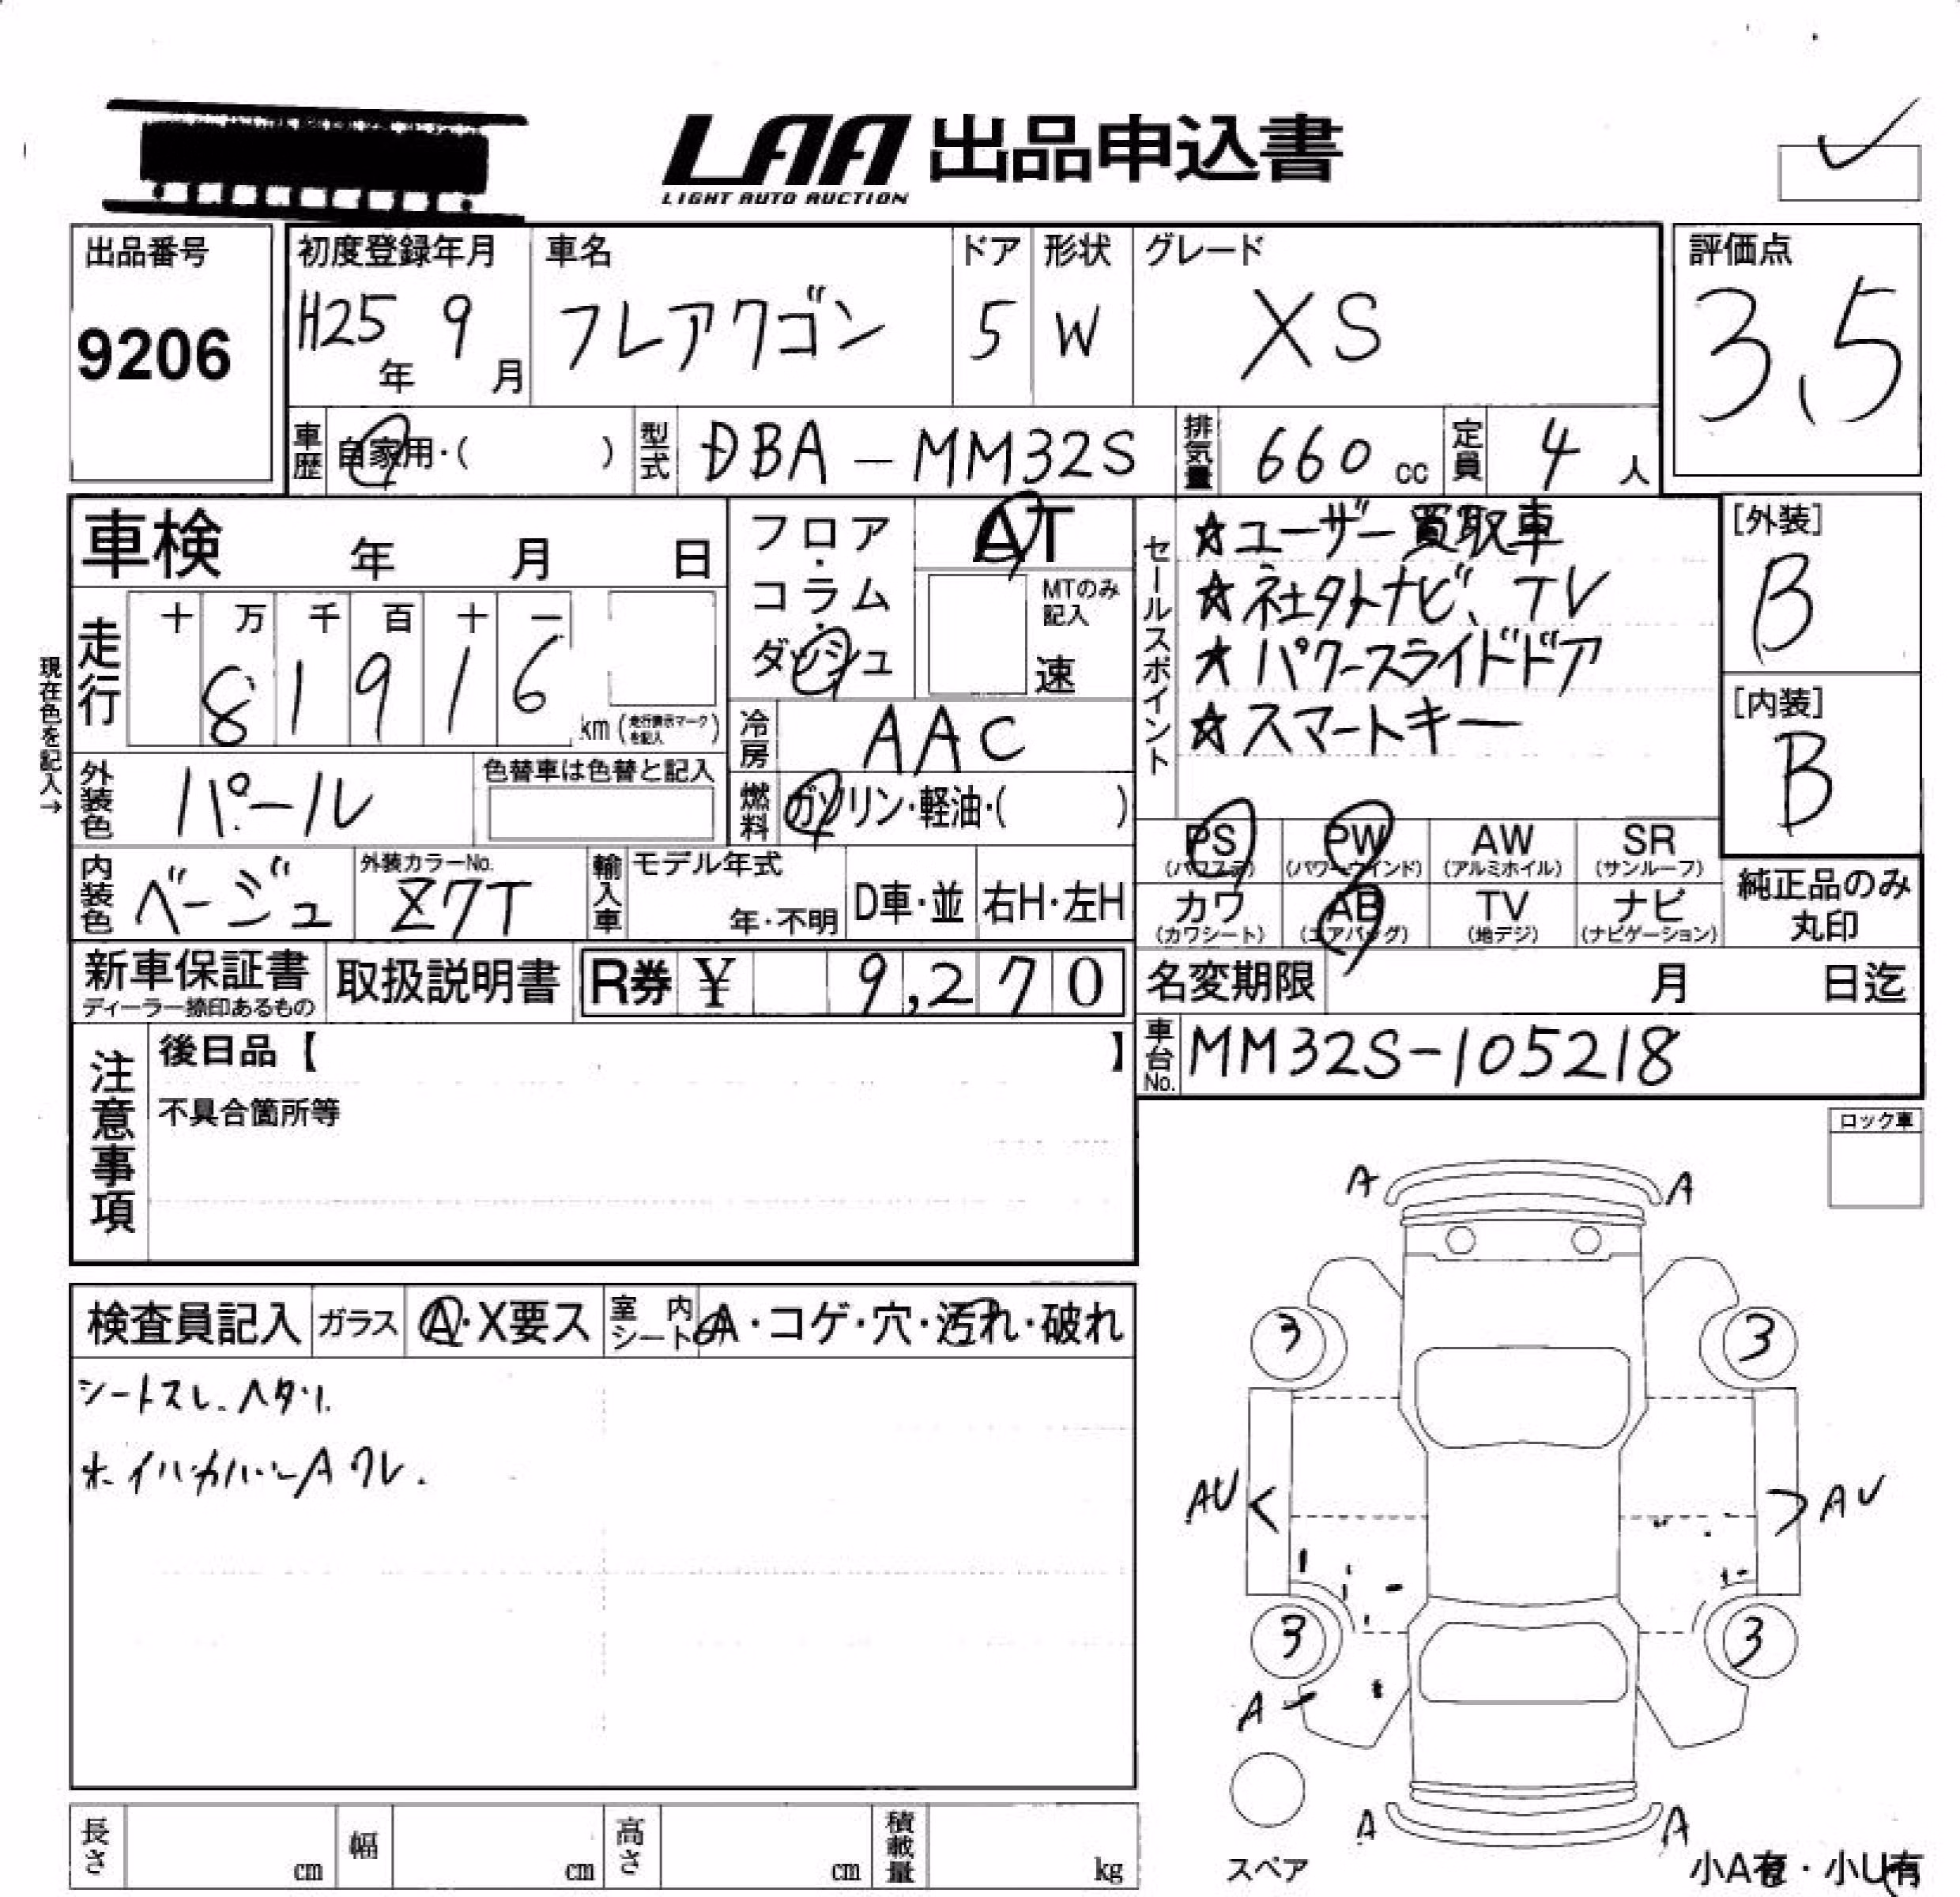 LAA 出品申込書
LIGHT AUTO AUCTION
出品番号
9206
初度登録年月
H25年 9月
車名
フレアワゴン
ドア
5
形状
W
グレード
XS
評価点
3.5
車歴 自家用・( )
型式 DBA-MM32S
排気量 660 cc
定員 4 人
車検 年 月 日
現在色を記入→
走行
十 万 千 百 十 一
8 1 9 1 6
km (走行表示マークを記入)
外装色 パール
色替車は色替と記入
内装色 ベージュ
外装カラーNo.
Z7T
フロア・コラム・ダッシュ
AT
MTのみ記入
速
冷房 AAC
燃料 ガソリン・軽油・( )
輸入車 モデル年式
年・不明
D車・並
右H・左H
セールスポイント
☆ユーザー買取車
☆社外ナビ、TV
☆パワースライドドア
☆スマートキー
[外装]
B
[内装]
B
PS (パワステ)
PW (パワーウインド)
AW (アルミホイル)
SR (サンルーフ)
カワ (カワシート)
AB (エアバッグ)
TV (地デジ)
ナビ (ナビゲーション)
純正品のみ
丸印
新車保証書
ディーラー捺印あるもの
取扱説明書
R券 ¥ 9,270
名変期限 月 日迄
車台No. MM32S-105218
注意事項
後日品【 】
不具合箇所等
ロック車
検査員記入
ガラス A・X要ス
室内シート A・コゲ・穴・汚れ・破れ
シートスレ.ヘタリ.
A A
3 3
AU AU
3 3
A
A A
スペア
小A有・小U有
長さ cm
幅 cm
高さ cm
積載量 kg